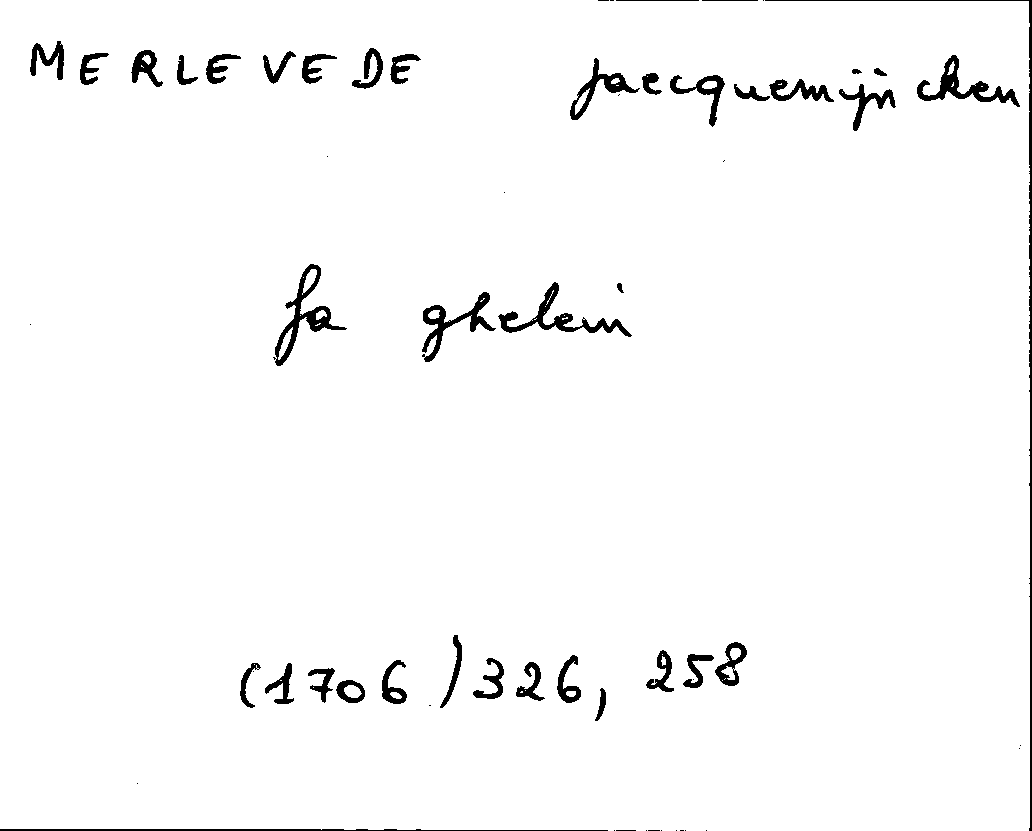 MERLEVEDE Jaecquemijncken
fa ghelein
(1706) 326, 258